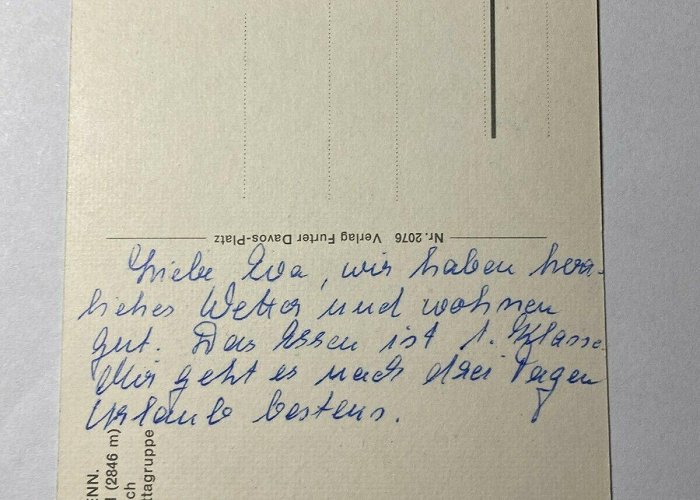 Nr. 2076 Verlag Furter Davos-Platz
Liebe Eva, wir haben herr-
liches Wetter und wohnen
gut. Das Essen ist 1. Klasse.
Mir geht es nach drei Tagen
Urlaub bestens.
ENN.
(2846 m)
ch
ttagruppe